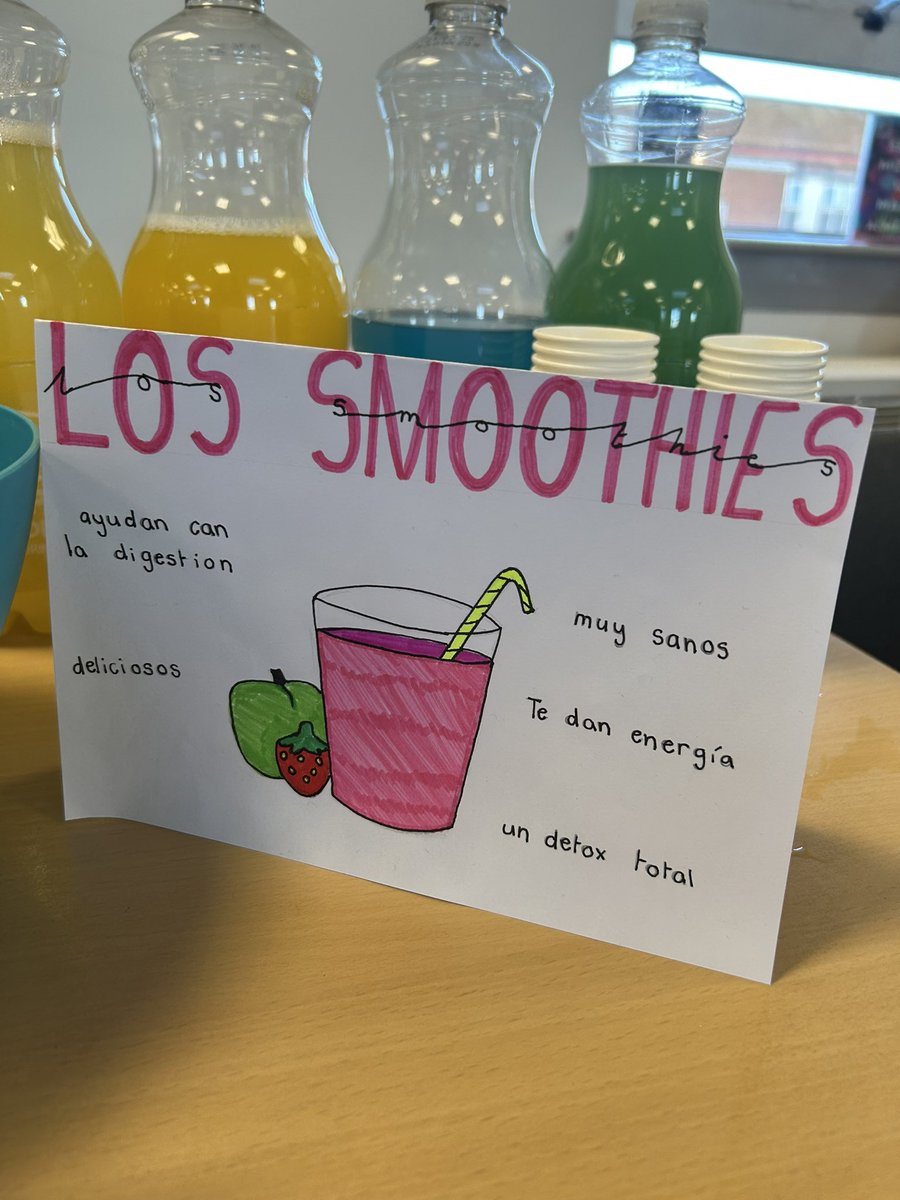 LOS SMOOTHIES
los smoothies
ayudan can
la digestion
deliciosos
muy sanos
Te dan energía
un detox total